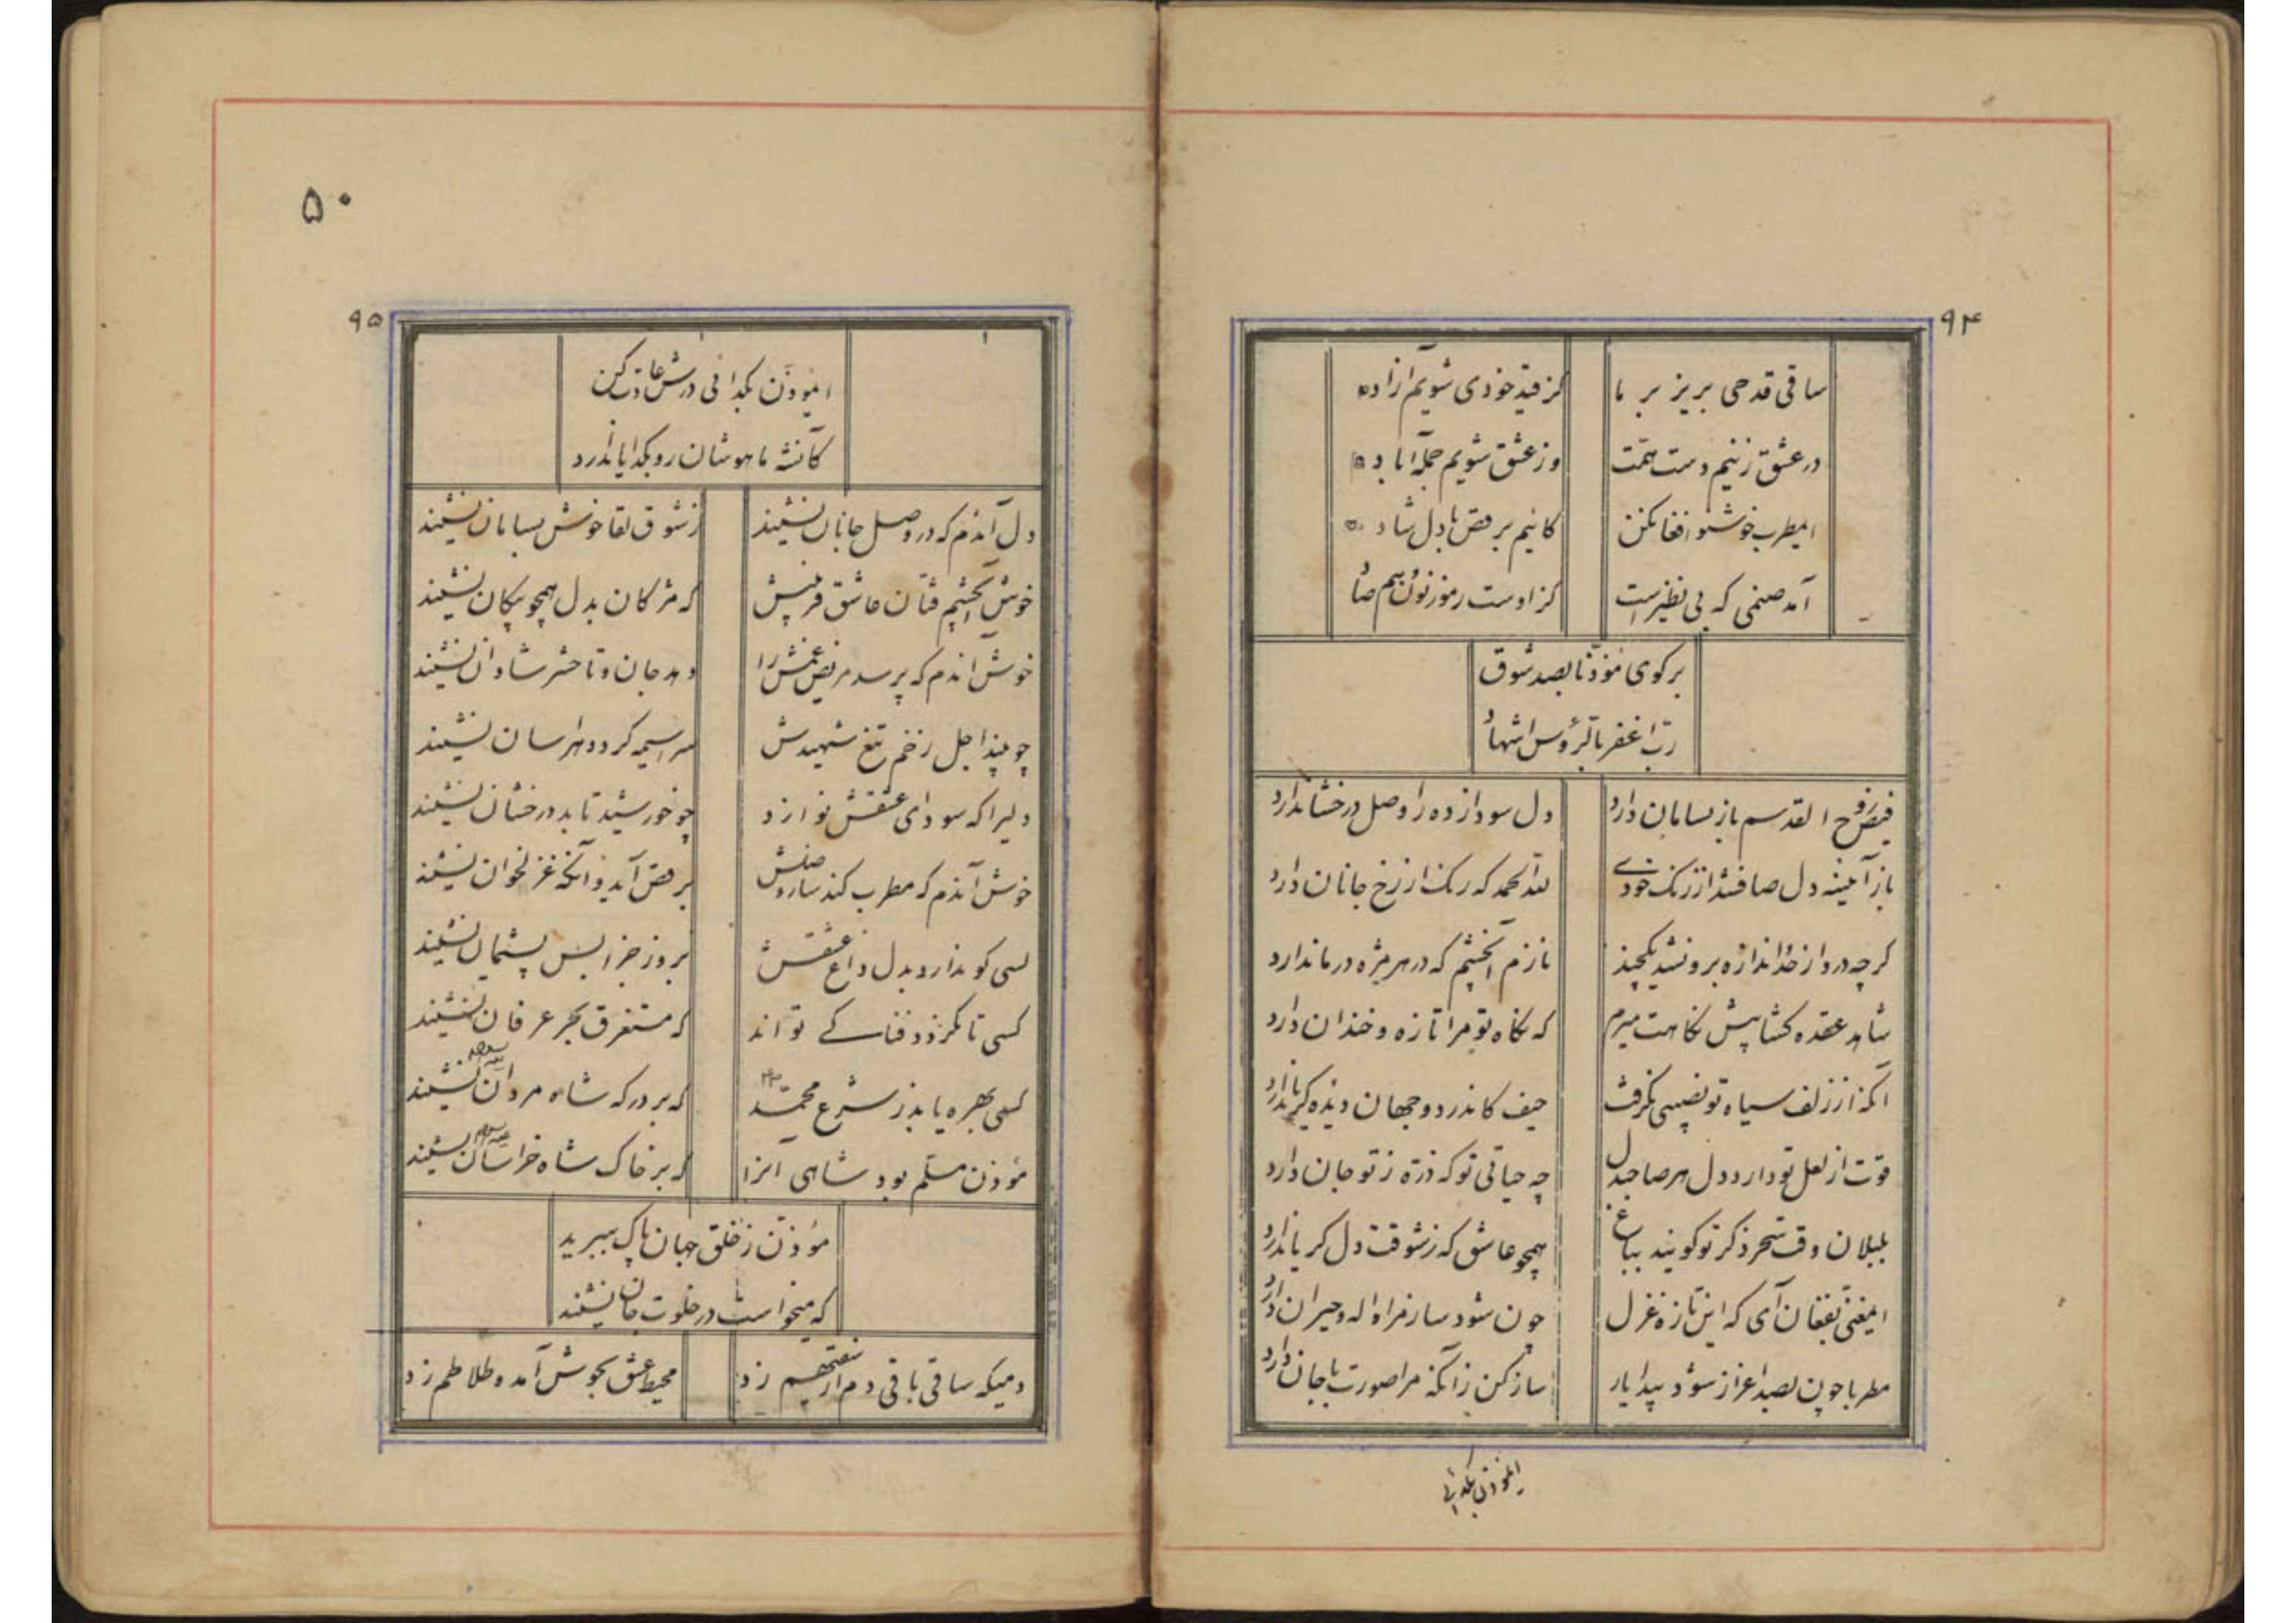 ۹۴
ساقی قدحی بریز بر ما کز قید خودی شویم آزاده
در عشق زنیم دست همت وز عشق شویم جمله اباده
ایمطرب خوشنوا فغانکن کائیم برقص با دل شاده
آمد صنمی که بی نظیر است کز اوست رموز نون هم صاد
برکوی مؤذنا بصد شوق
رب اغفر بالرؤس اشهاد
فیض روح القدسم باز بسامان دارد دل سودازده را وصل درخشان دارد
باز آیینه دل صاف شد از زنک خودی لله الحمد که رنک از رخ جانان دارد
کرچه درد از حد اندازه برونشد یکچند نازم آنچشم که در هر مژه درمان دارد
شاهد عقده کشا پیش نکاهت میرم که نکاه تو مرا تازه و خندان دارد
آنکه از زلف سیاه تو نصیبی نکرفت حیف کاندر دو جهان دیده کریان دارد
قوت از لعل تو دارد دل هر صاحبدل چه حیاتی تو که ذره ز تو جان دارد
بلبلان وقت سحر ذکر تو کویند بباغ همچو عاشق که ز شوقت دل کریان دارد
ایمغنی بفغان آی که این تازه غزل چون شود ساز مرا واله و حیران دارد
مطربا چون بصد اعزاز شود پیدا یار ساز کن زآنکه مرا صورت با جان دارد
ایمؤذن بکدائی
۵۰
۹۵
ایمؤذن بکدائی درش عادت کن
کآنشه ماهوشان رو بکدایان دارد
دل آندم که در وصل جانان نشیند ز شوق لقا خوش بسامان نشیند
خوش آنچشم فتان عاشق فریبش که مژکان بدل همچو پیکان نشیند
خوش آندم که پرسد مریض غمش را دهد جان و تا حشر شادان نشیند
چو بیند اجل زخم تیغ شهیدش سراسیمه کردد هراسان نشیند
دلیرا که سودای عشقش نوازد چو خورشید تابد درخشان نشیند
خوش آندم که مطرب کند ساز وصلش برقص آید و آنکه غزلخوان نشیند
کسی کو ندارد بدل داغ عشقش بروز جزا بس پشیمان نشیند
کسی تا نکردد فنا کے تواند که مستغرق بحر عرفان نشیند
کسی بهره یابد ز شرع محمد که بر درکه شاه مردان نشیند
مؤذن مسلم بود شاهی آنرا که بر خاک شاه خراسان نشیند
مؤذن ز خلق جهان پاک ببرید
که میخواست در خلوت جان نشیند
دمیکه ساقی باقی دم از سقیهم زد محیط عشق بجوش آمد و طلاطم زد